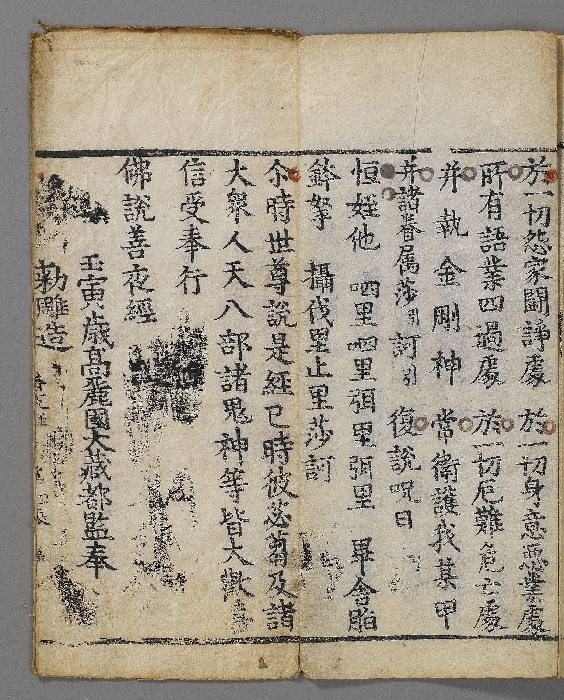 於一切怨家鬪諍處 於一切身意惡業處
所有語業四過處 於一切厄難危亡處
并執金剛神 常衛護我某甲
并諸眷属莎引訶引 復說呪曰
恒姪他 呬里呬里弭里弭里 畢舍脂
鉢拏 攝伐里止里莎訶
尒時世尊說是經已時彼苾蒭及諸
大衆人天八部諸鬼神等皆大歡喜
信受奉行
佛說善夜經
壬寅歳高麗國大藏都監奉
勅雕造